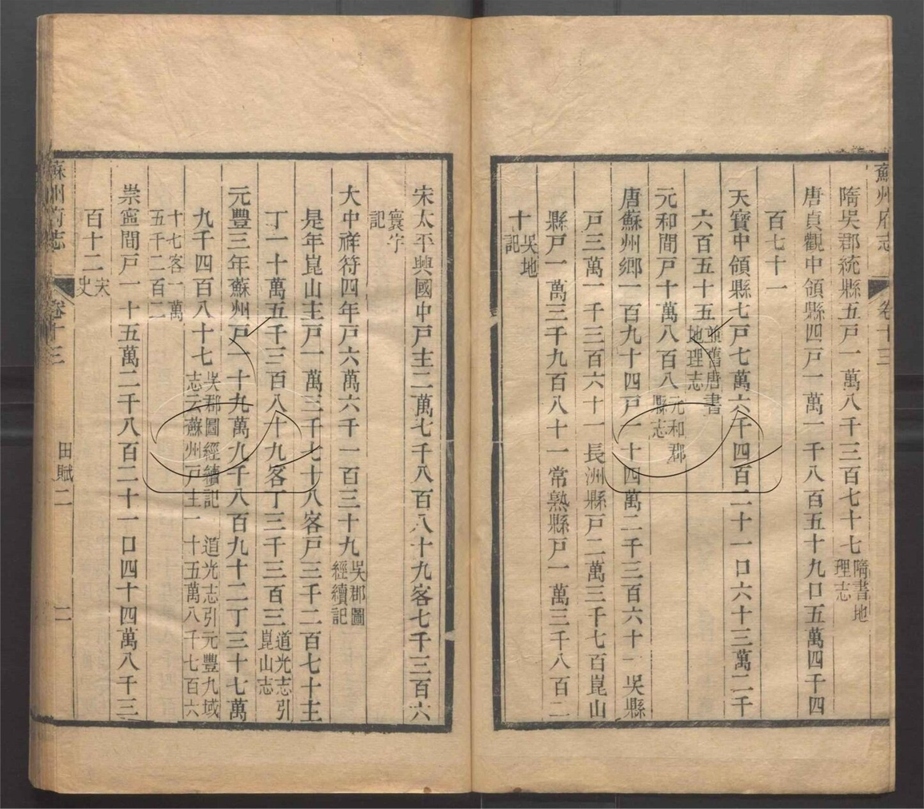 蘇州府志 卷十三
隋吳郡統縣五戶一萬八千三百七十七隋書地理志
唐貞觀中領縣四戶一萬一千八百五十九口五萬四千四
百七十一
天寶中領縣七戶七萬六千四百二十一口六十三萬二千
六百五十五並舊唐書地理志
元和間戶十萬八百八元和郡縣志
唐蘇州鄉一百九十四戶一十四萬二千三百六十一吳縣
戶三萬一千三百六十一長洲縣戶二萬三千七百崑山
縣戶一萬三千九百八十一常熟縣戶一萬三千八百二
十吳地記
宋太平興國中戶主二萬七千八百八十九客七千三百六
寰宇記
大中祥符四年戶六萬六千一百三十九吳郡圖經續記
是年崑山主戶一萬三千七十八客戶三千二百七十主
丁一十萬五千三百八十九客丁三千三百三道光志引崑山志
元豐三年蘇州戶一十九萬九千八百九十二丁三十七萬
九千四百八十七吳郡圖經續記 道光志引元豐九域志云蘇州戶主一十五萬八千七百六
十七客一萬五千二百二
崇寧間戶一十五萬二千八百二十一口四十四萬八千三
百十二宋史
蘇州府志 卷十三 田賦二 二